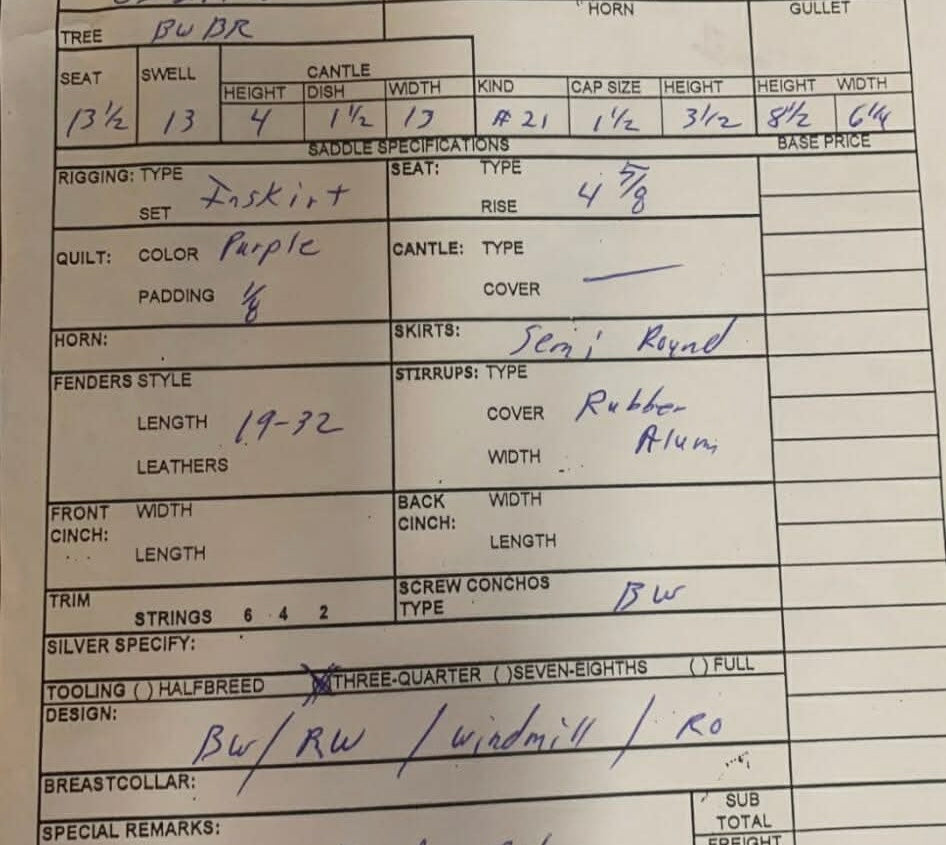 HORN GULLET
TREE BW BR
SEAT SWELL CANTLE
HEIGHT DISH WIDTH KIND CAP SIZE HEIGHT HEIGHT WIDTH
13 1/2 13 4 1 1/2 13 # 21 1 1/2 3 1/2 8 1/2 6 1/4
SADDLE SPECIFICATIONS BASE PRICE
RIGGING: TYPE SEAT: TYPE
Inskirt 4 5/8
SET RISE
QUILT: COLOR Purple CANTLE: TYPE
PADDING 1/8 COVER —
HORN: SKIRTS: Semi Round
FENDERS STYLE STIRRUPS: TYPE
LENGTH 19-32 COVER Rubber
Alum
LEATHERS WIDTH
FRONT WIDTH BACK WIDTH
CINCH: CINCH:
LENGTH LENGTH
TRIM SCREW CONCHOS
STRINGS 6 4 2 TYPE BW
SILVER SPECIFY:
TOOLING ( ) HALFBREED (X) THREE-QUARTER ( ) SEVEN-EIGHTHS ( ) FULL
DESIGN:
BW / RW / windmill / RO
BREASTCOLLAR:
SPECIAL REMARKS: SUB
TOTAL
FREIGHT